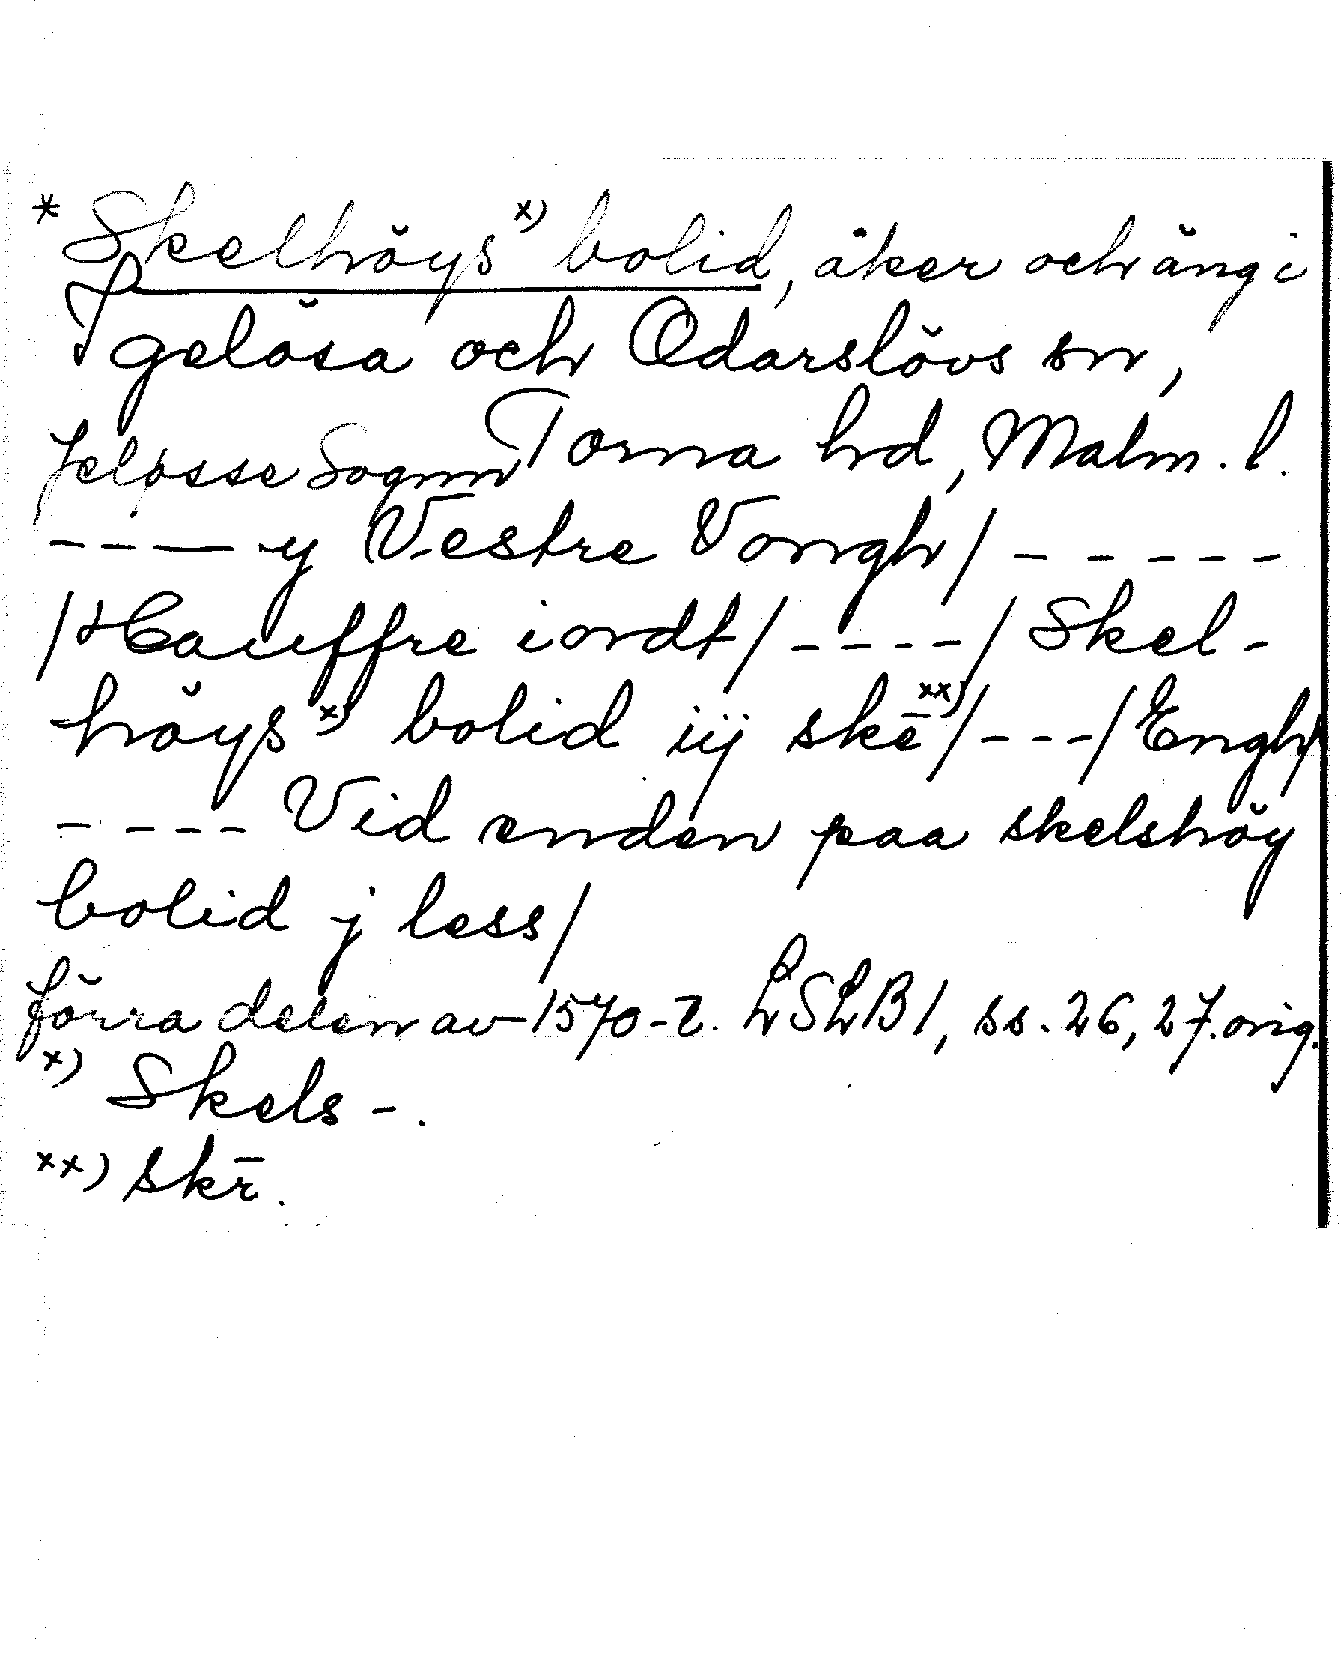 * Skelhöys x) bolid, åker och äng i
Igelösa och Odarslövs sn,
Torna hrd, Malm. l.
Jelösse Sognn
- - - - y Vestre Vongh/ - - - - -
/Hauffre iordt/ - - - - / Skel-
höys x) bolid iij skē xx)/ - - - / Engh/
- - - - Vid enden paa skelshöy
bolid j less/
förra delen av 1570-t. LSLB 1, ss. 26, 27. orig.
x) Skels -.
xx) skr̄.